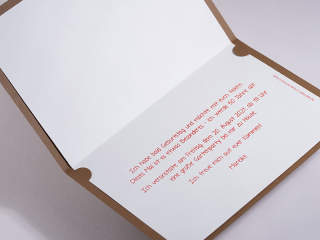 Ich habe bald Geburtstag und möchte mit euch feiern.
Dieses Mal ist es etwas Besonderes - ich werde 50 Jahre alt!
Ich veranstalte am Freitag, dem 20. August 2021, ab 18 Uhr
eine große Gartenparty bei mir zu Hause.
Ich freue mich auf euer Kommen!
Mareike